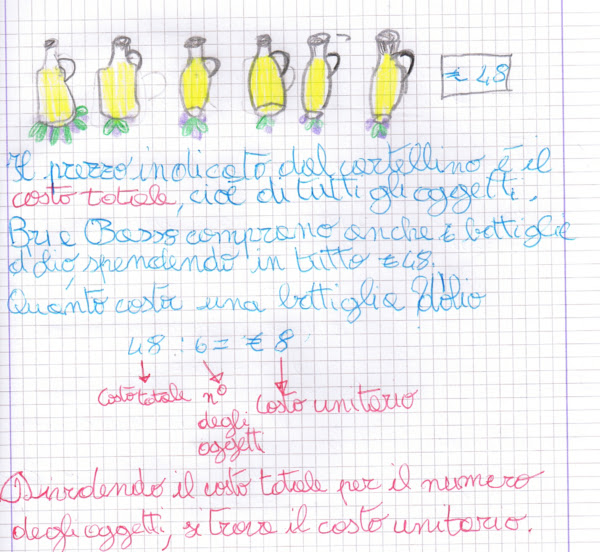 € 48
Il prezzo indicato dal cartellino è il
costo totale, cioè di tutti gli oggetti.
Bri e Basso comprano anche 6 bottiglie
d'olio, spendendo in tutto € 48.
Quanto costa una bottiglia d'olio
48 : 6 = € 8
costo totale n° costo unitario
degli
oggetti
Dividendo il costo totale per il numero
degli oggetti, si trova il costo unitario.